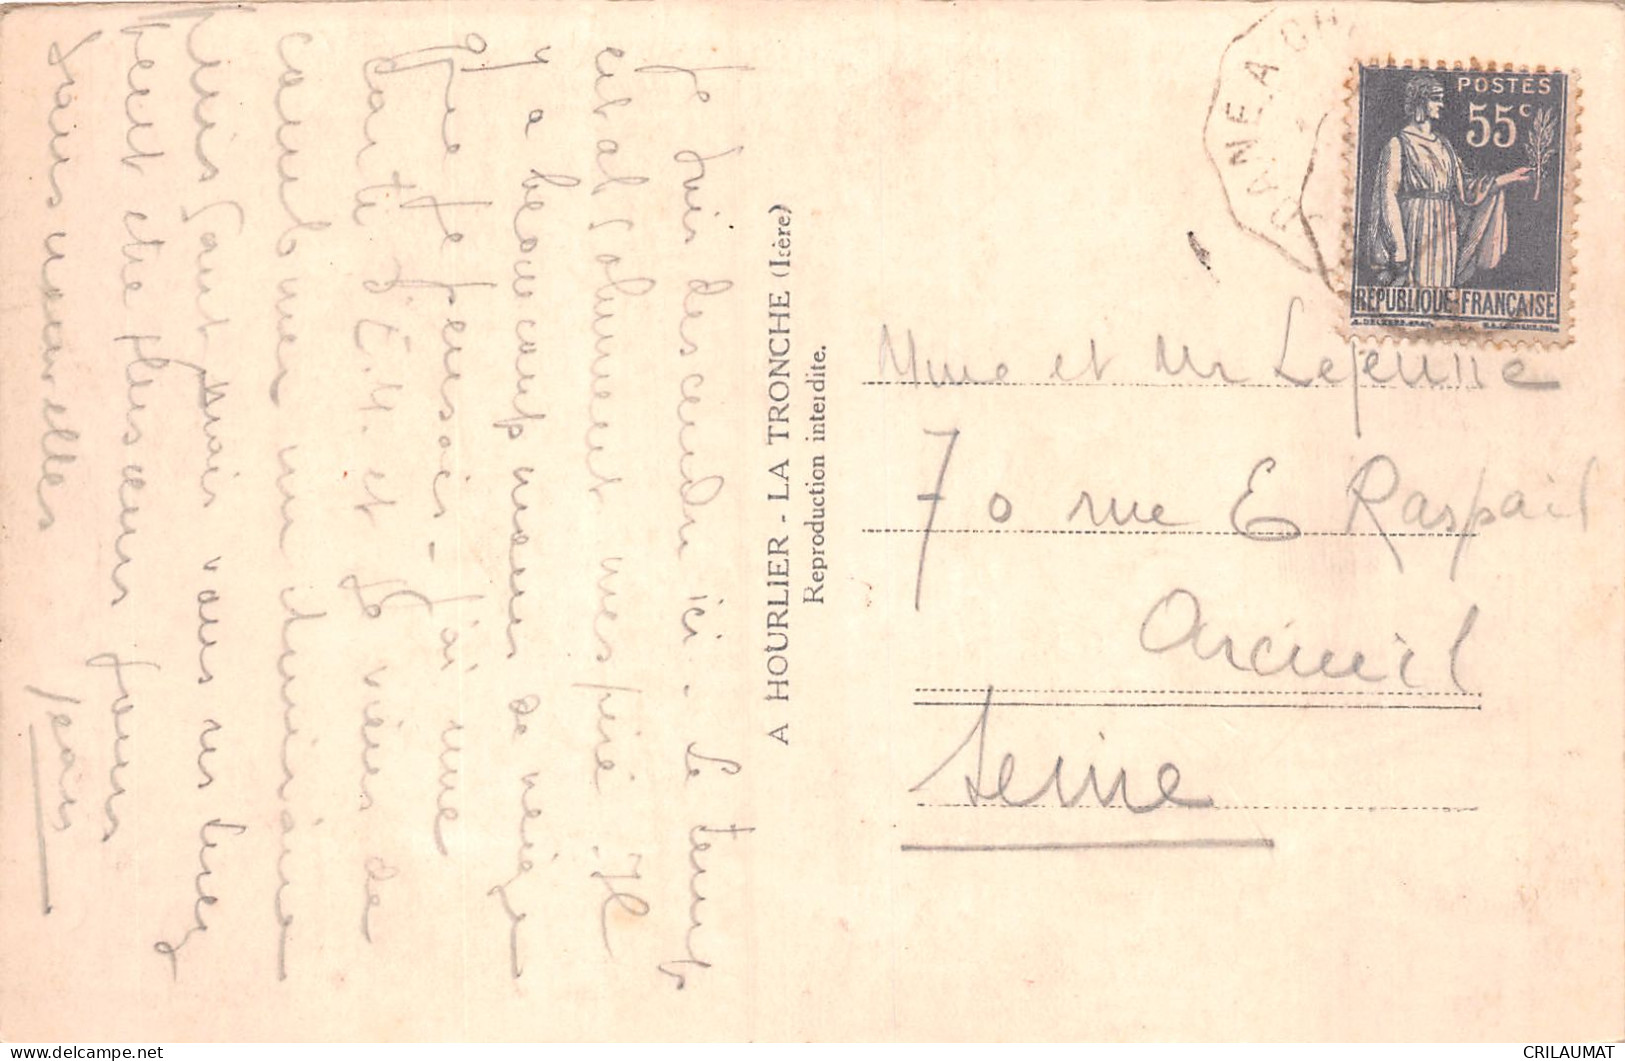 Je suis descendu ici - Le temps
est absolument merveillé. Il
y a beaucoup moins de neige
que je pensais - J'ai une
carte d'E.M. et je viens de
combiner un itinéraire
mais sans vous
peut être plusieurs jours
sans nouvelles
Jean
A HOURLIER - LA TRONCHE (Isère)
Reproduction interdite.
POSTES
55c
REPUBLIQUE FRANÇAISE
Mme et Mr Lejeune
70 rue E Raspail
Arcueil
Seine
CRILAUMAT